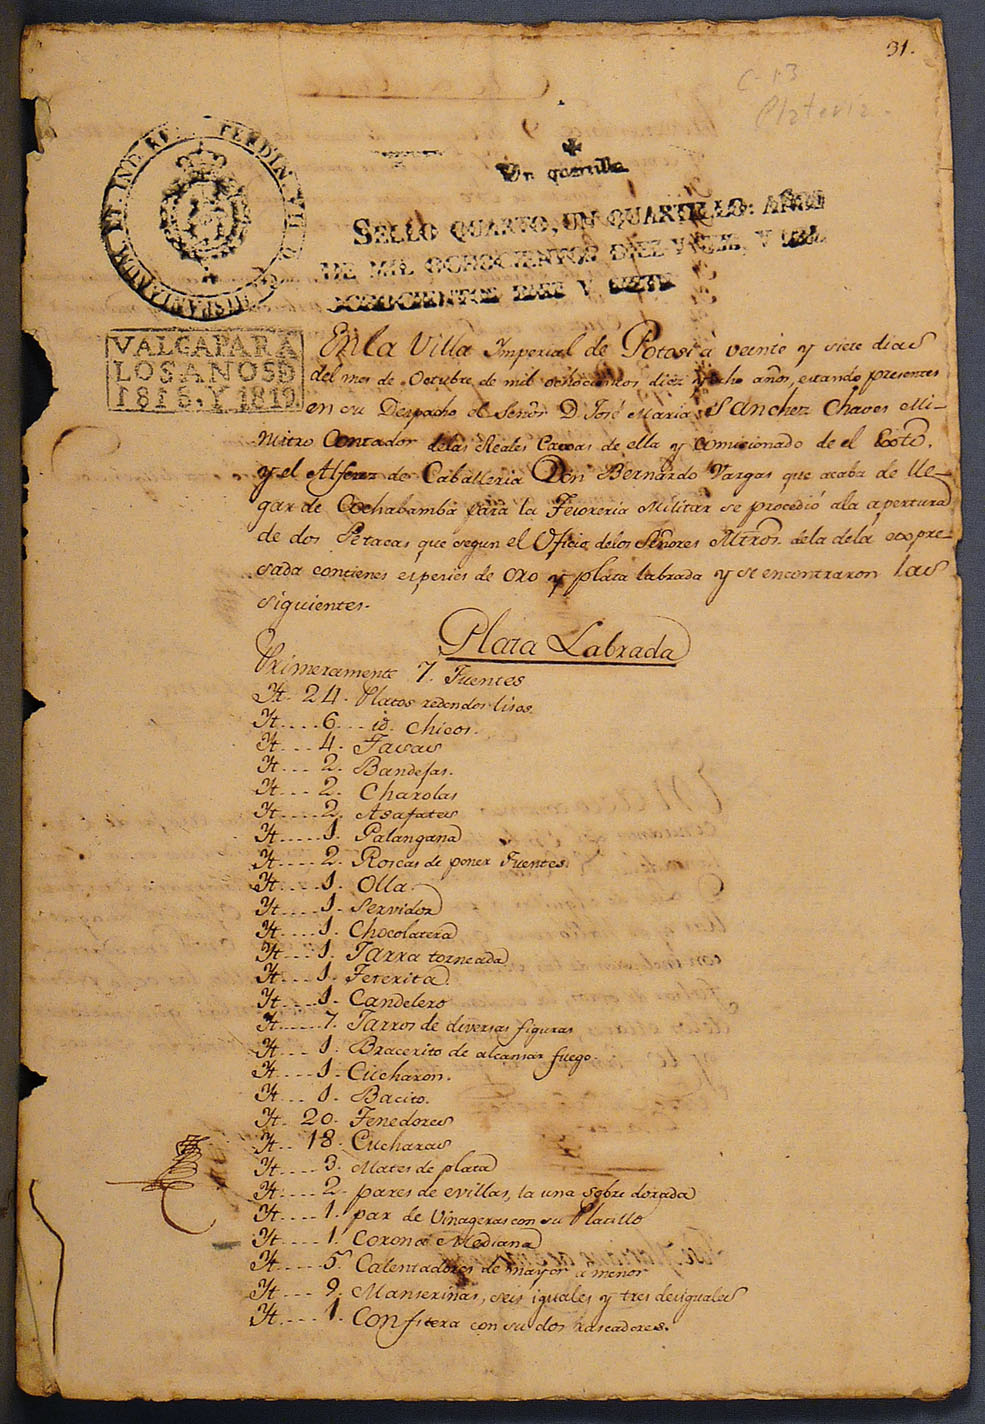 31.
C-13
Plateria.
Un quartillo
SELLO QUARTO, UN QUARTILLO: AÑOS
DE MIL OCHOCIENTOS DIEZ Y SEIS, Y MIL
OCHOCIENTOS DIEZ Y SIETE
HISPANIARUM ET IND. REX FERDIN. VII D. G.
VALGA PARA
LOS AÑOS D
1818. Y 1819.
En la Villa Imperial de Potosi a veinte y siete dias
del mes de Octubre de mil ochocientos diez y ocho años, estando presentes
en su Despacho el Señor D. José Maria Sanchez Chaves Mi-
nistro Contador delas Reales Caxas de ella y Comicionado de el Exto.
y el Alferez de Caballeria Don Bernardo Vargas que acaba de lle-
gar de Cochabamba para la Tesoreria Militar se procedió ala apertura
de dos Petacas que segun el Oficio delos Señores Mtros. dela dela expre-
sada contienes especies de oro y plata labrada y se encontraron las
siguientes.
Plata Labrada
Primeramente 7. Fuentes
Yt. 24. Platos redondos lisos.
Yt....6... id. chicos.
Yt...4. Tasas
Yt...2. Bandejas.
Yt...2. Charolas
Yt....2. Asafates
Yt....1. Palangana
Yt....2. Roscas de poner Fuentes.
Yt....1. Olla.
Yt....1. Servidor
Yt....1. Chocolatera
Yt...1. Jarra torneada
Yt....1. Teterita
Yt....1. Candelero
Yt.....7. Jarros de diversas figuras
Yt...1. Bracerito de alcansar fuego.
Yt....1. Cucharon.
Yt...1. Bacito.
Yt. 20. Tenedores
Yt.. 18. Cucharas
Yt....3. Mates de plata
Yt....2. pares de evillas, la una sobre dorada
Yt....1. par de Vinageras con su Platillo
Yt....1. Corona Mediana
Yt....5. Calentadores de mayor a menor
Yt...9. Manserinas, seis iguales y tres desiguales
Yt....1. Confitera con su dos rascadores.